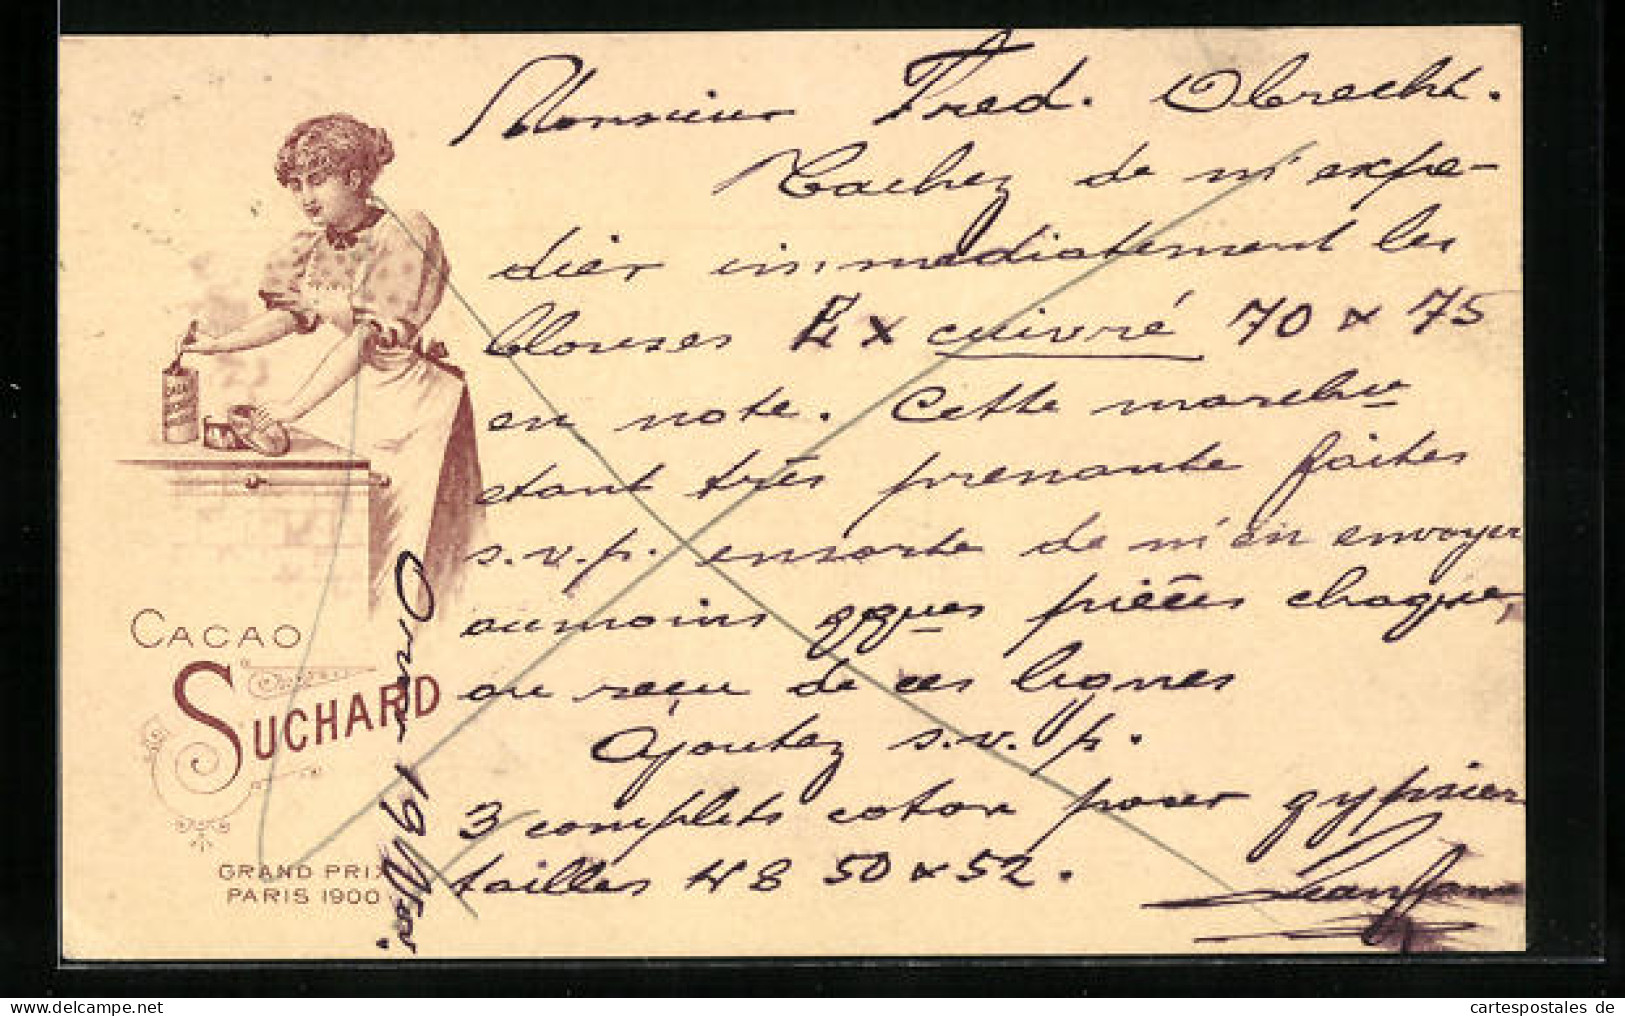 Monsieur Fred. Obrecht.
Tachez de m'expe-
dier immediatement les
blouses Ex cuivré 70 & 75
en note. Cette march
etant très prenante faites
s.v.p. ensorte de m'en envoyer
aumoins qques pièces chaque,
au reçu de ces lignes
Ajoutez s.v.p.
3 complets coton pour gypsier
tailles 48 50 & 52.
19
CACAO
SUCHARD
GRAND PRIX
PARIS 1900
cartespostales de